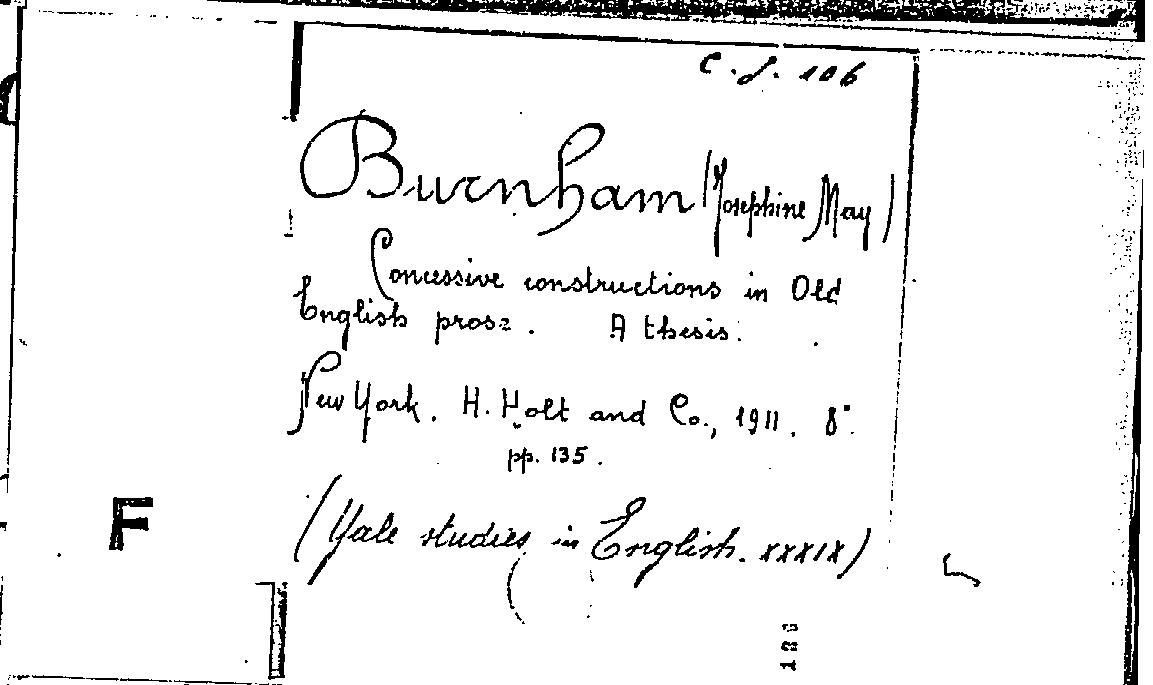 C.J. 106
Burnham (Josephine May)
Concessive constructions in Old
English prose. A thesis.
New York. H. Holt and Co., 1911. 8°
pp. 135.
(Yale studies in English. XXXIX)
F